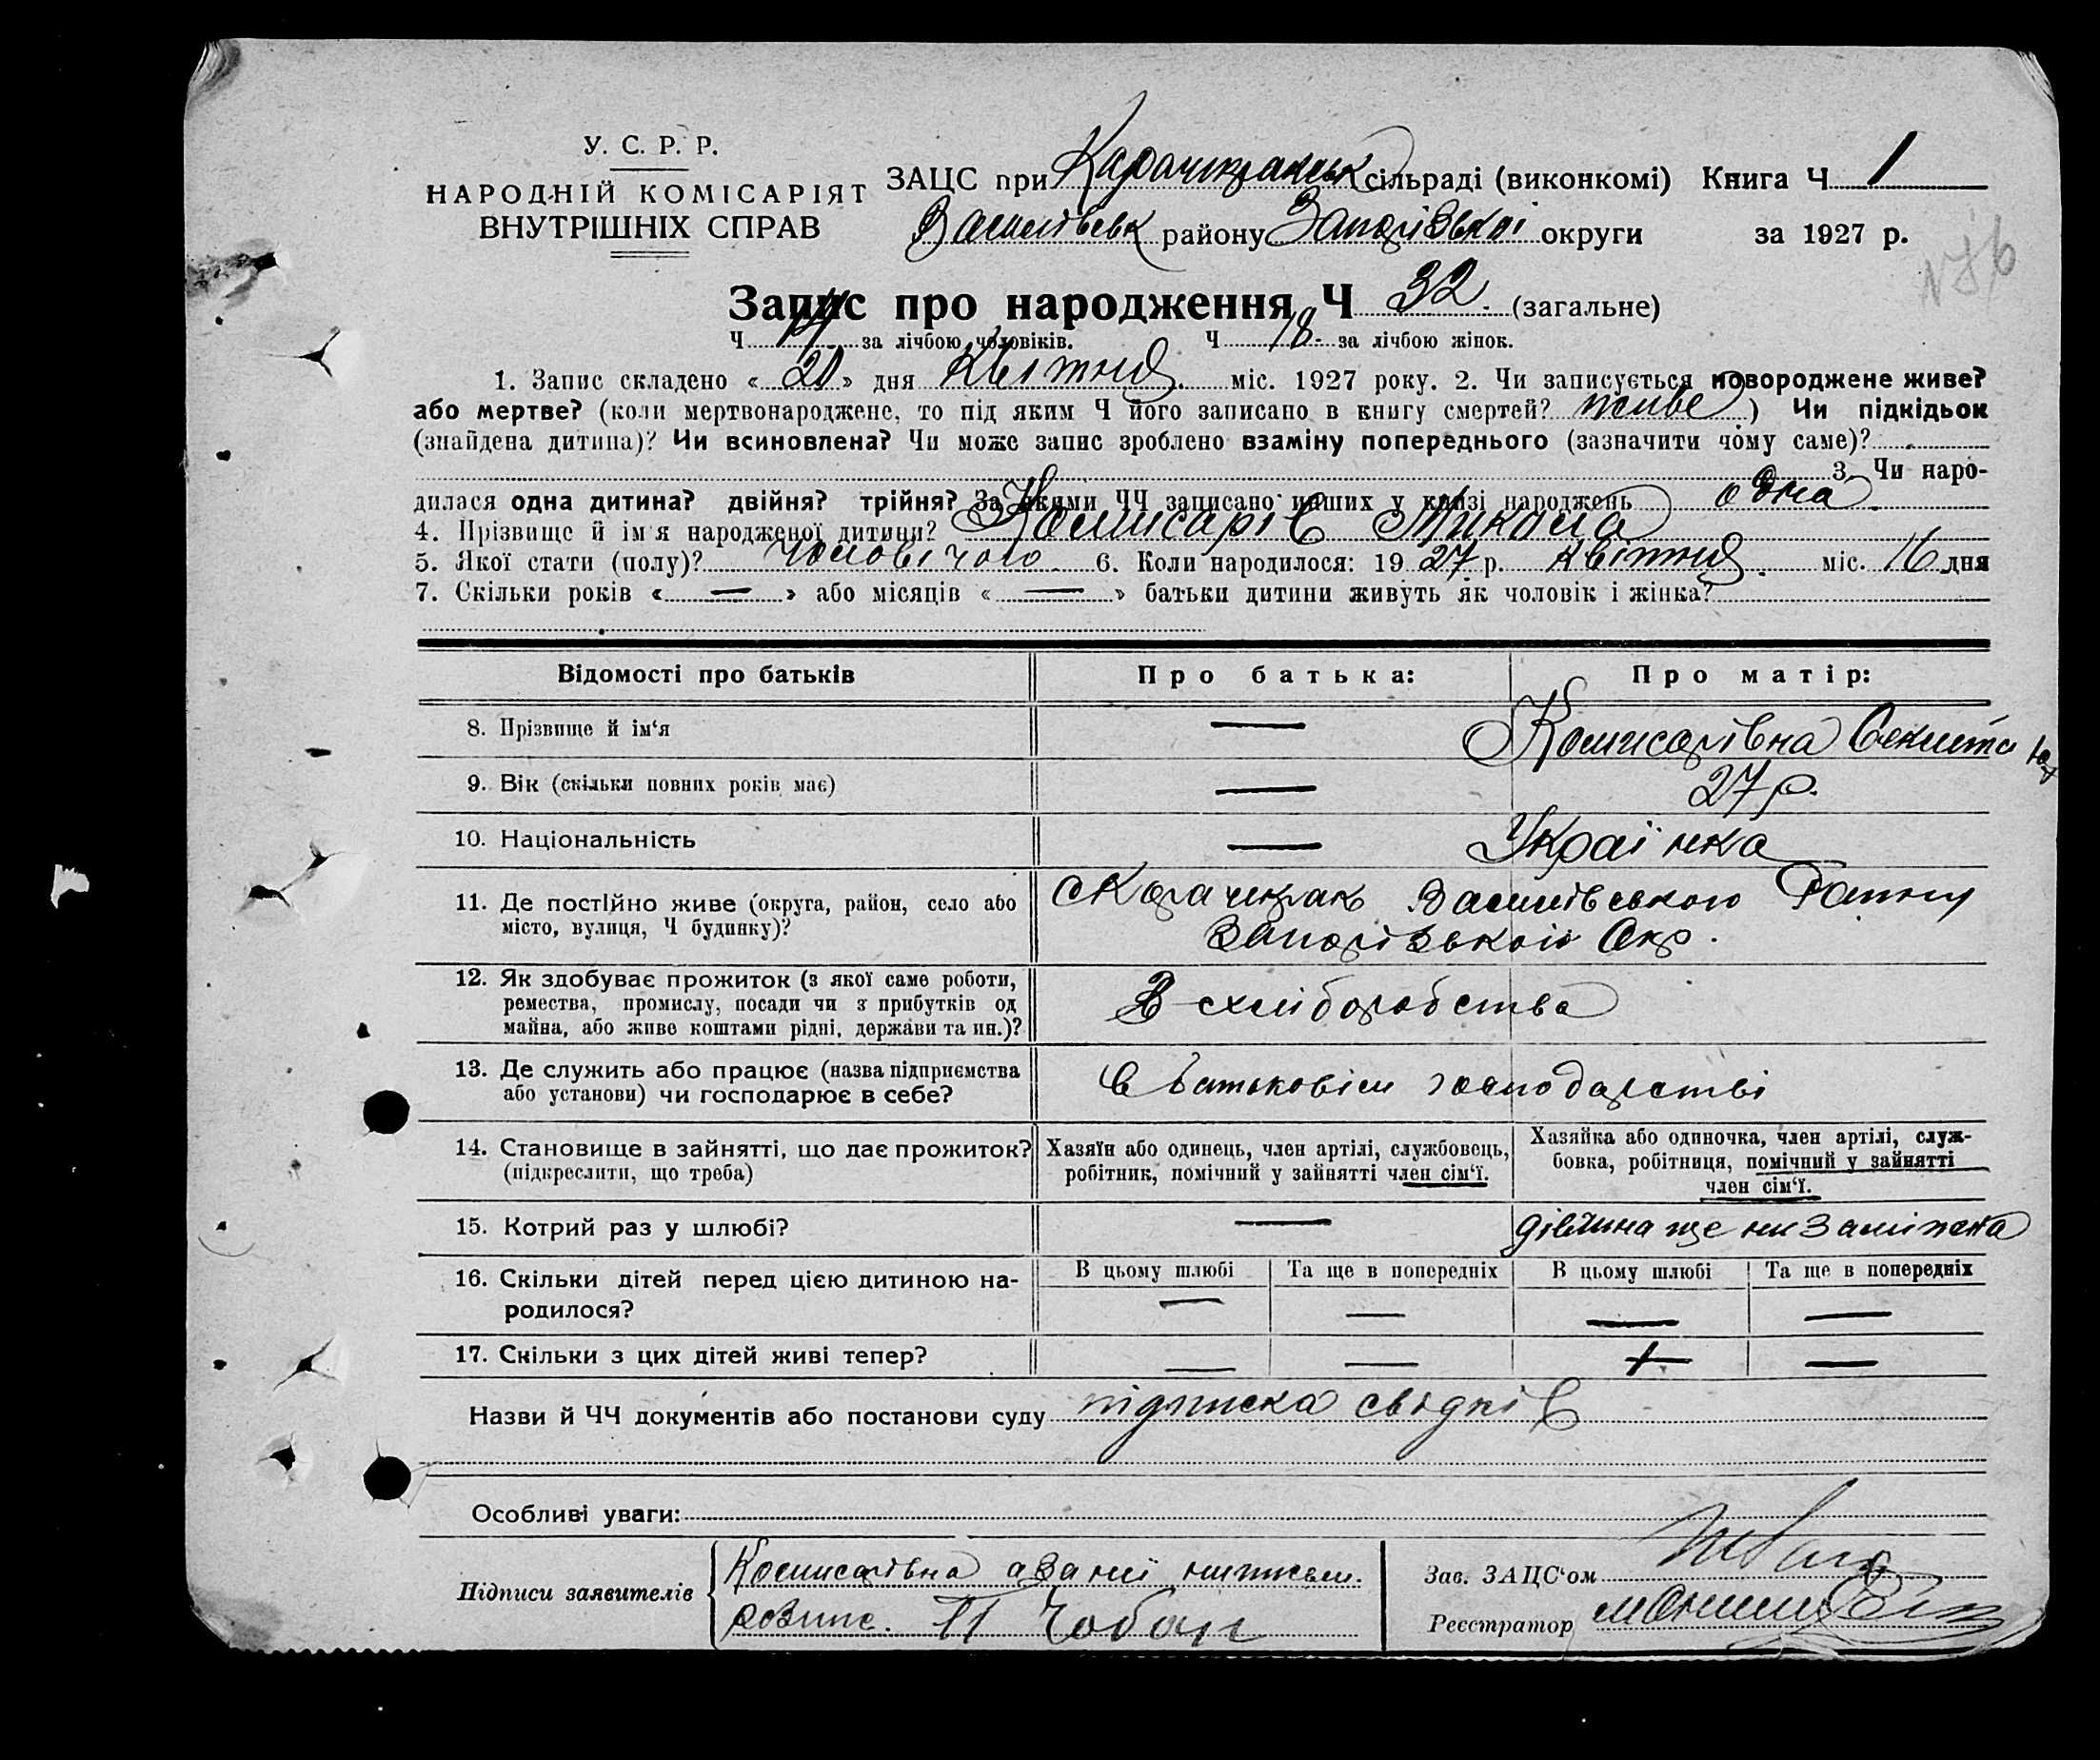 У. С. Р. Р.
НАРОДНІЙ КОМІСАРІЯТ
ВНУТРІШНІХ СПРАВ
ЗАЦС при Карачекракськ сільраді (виконкомі) Книга Ч 1
Василівськ району Запорізької округи за 1927 р.
Запис про народження Ч 32. (загальне)
Ч 14 за лічбою чоловіків. Ч 18 за лічбою жінок.
1. Запис складено « 20 » дня Квітня міс. 1927 року. 2. Чи записується новороджене живе?
або мертве? (коли мертвонароджене, то під яким Ч його записано в книгу смертей? живе) Чи підкідьок
(знайдена дитина)? Чи всиновлена? Чи може запис зроблено взаміну попереднього (зазначити чому саме)?
3. Чи наро-
дилася одна дитина? двійня? трійня? За якими ЧЧ записано инших у книзі народжень одна
4. Прізвище й ім'я народженої дитини? Комисарів Микола
5. Якої стати (полу)? чоловічого 6. Коли народилося: 19 27 р. квітня міс. 16 дня
7. Скільки років « — » або місяців « — » батьки дитини живуть як чоловік і жінка?
Відомості про батьків Про батька: Про матір:
8. Прізвище й ім‘я — Комисарівна
9. Вік (скільки повних років має) — 27 р.
10. Національність — Українка
11. Де постійно живе (округа, район, село або
місто, вулиця, Ч будинку)?
с Карачекрак Василівського Району
Запорізької Окр.
12. Як здобуває прожиток (з якої саме роботи,
ремества, промислу, посади чи з прибутків од
майна, або живе коштами рідні, держави та ин.)?
З схліборобства
13. Де служить або працює (назва підприємства
або установи) чи господарює в себе?
В батьковім господарстві
14. Становище в зайнятті, що дає прожиток?
(підкреслити, що треба)
Хазяїн або одинець, член артілі, службовець,
робітник, помічний у зайнятті член сім‘ї.
Хазяйка або одиночка, член артілі, служ-
бовка, робітниця, помічний у зайнятті
член сім‘ї.
15. Котрий раз у шлюбі? — дівчина ще ни заміжня
16. Скільки дітей перед цією дитиною на-
родилося?
В цьому шлюбі Та ще в попередніх В цьому шлюбі Та ще в попередніх
— — — —
17. Скільки з цих дітей живі тепер? — — — —
Назви й ЧЧ документів або постанови суду підписка свідків
Особливі уваги:
Підписи заявителів Комисарівна
П Чобан
Зав. ЗАЦС‘ом
Реєстратор